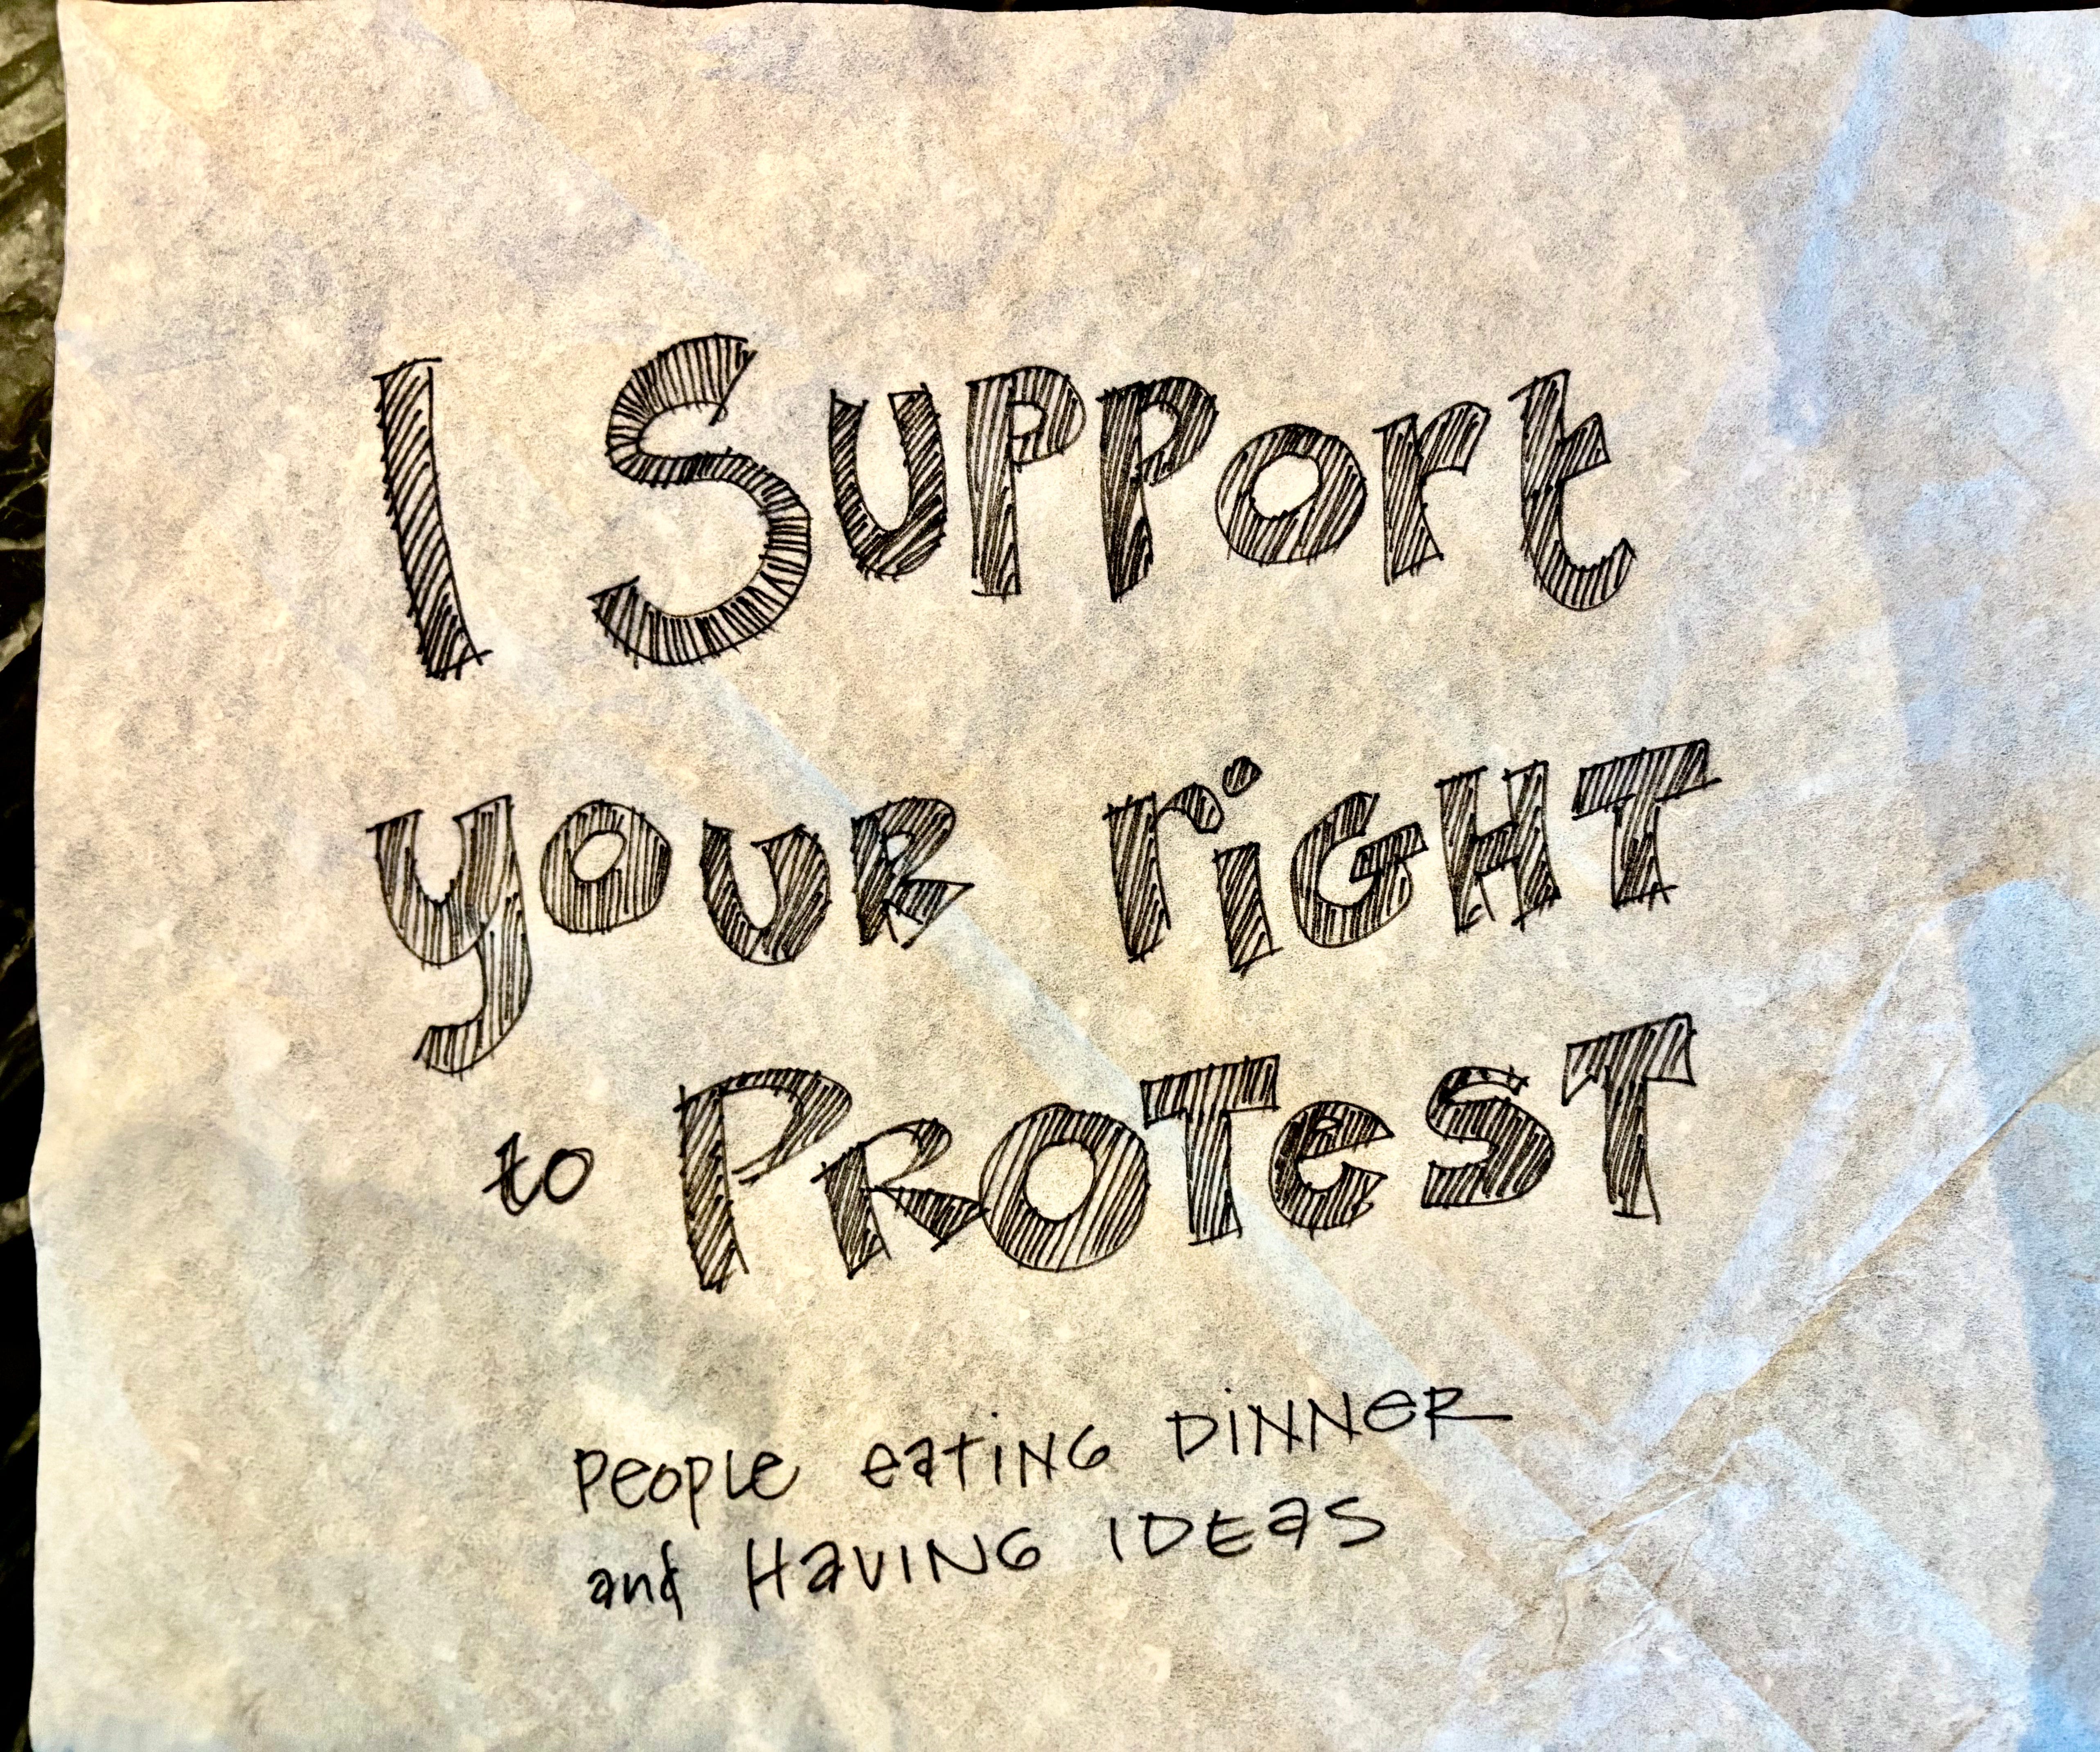 I Support
your riGHT
to PROTesT
People eatiNG DiNNeR
and HaVING IDEaS